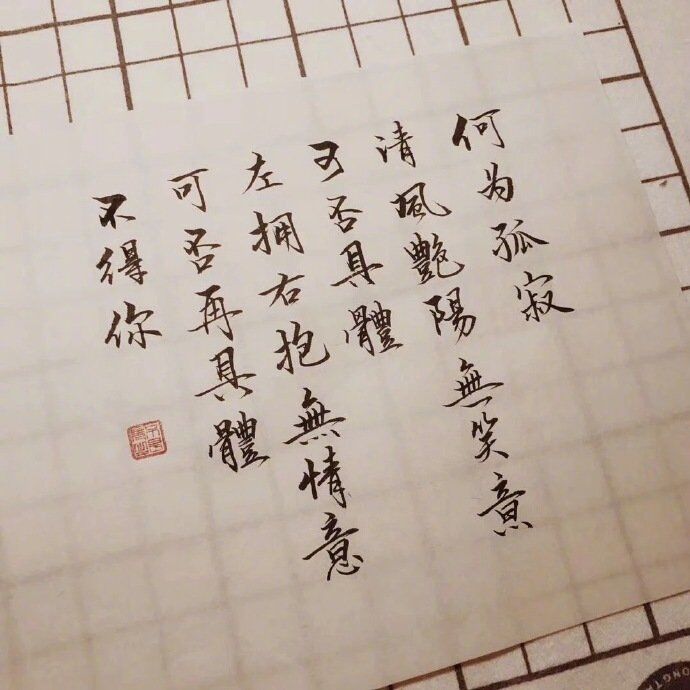 何为孤寂
清風艷陽無笑意
可否具體
左拥右抱無情意
可否再具體
不得你